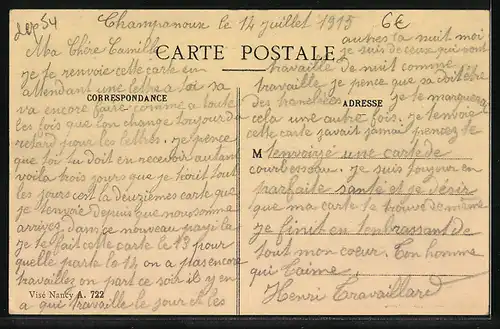 dep 54
Champenoux le 14 juillet 1915
6€
CARTE POSTALE
CORRESPONDANCE
ADRESSE
Ma Chère Camille
je te renvoie cette carte en
attendant une lettre a toi sa
va encore faire comme a toute
les fois que l'on change toujour du
retard pour les lettres. je pence
que toi tu doit en recevoir autant
voila trois jours que je t'ecrit tout
les jours c'est la deuxièmes carte que
je t'envoie depuis que nous somme
arrivez dans ce nouveau pays la
je te fait cette carte le 13 pour
quelle parte le 14 on a pas encore
travaillez on part ce soir il y en
a que travaille le jour et les
Visé Nancy A. 722
autres la nuit moi
je suis de ceux qui vont
travaillé de nuit comme
travaille je pence que sa doit être
des tranchées je te marquerai
cela une autre fois. je t'envoie
cette carte j'avait jamai pencez te
M
l'envoyez une carte de
courbesseau. je suis toujour en
parfaite santé et je désir
que ma carte te trouve de même
je finit en t'embrassant de
tout mon coeur. Ton homme
qui t'aime.
Henri Travaillard